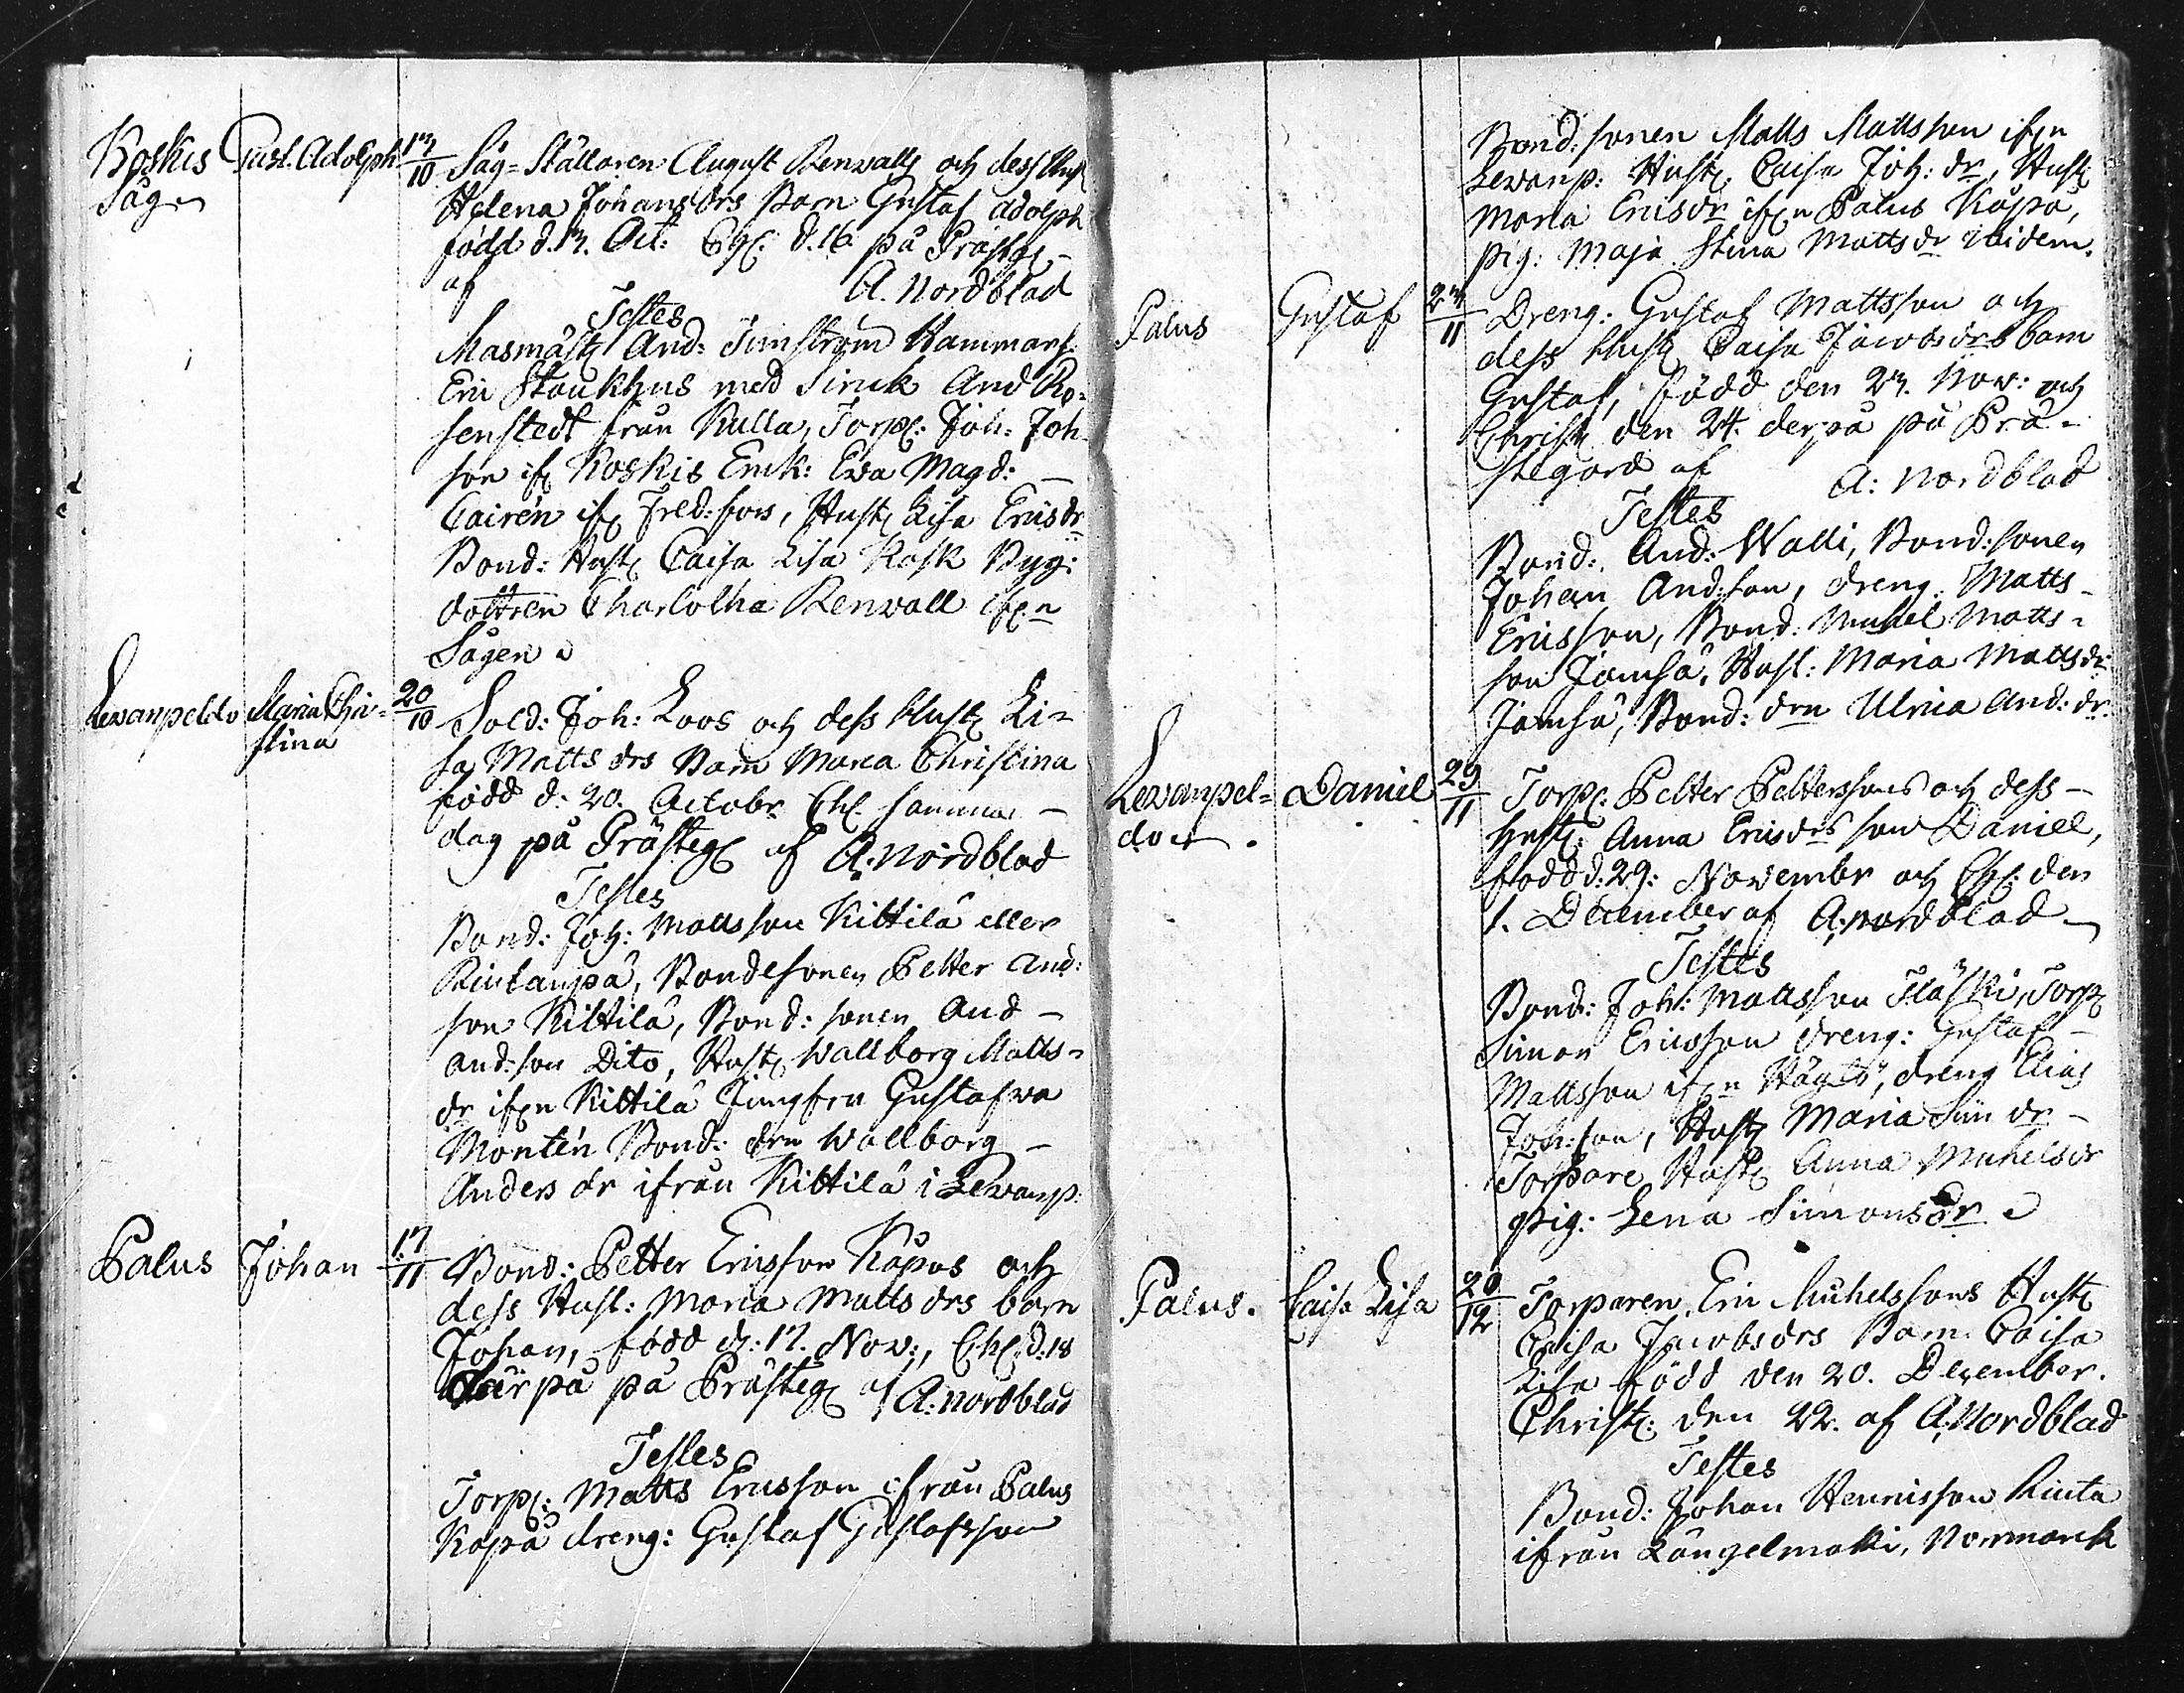 Koskis Gust. Adolph 13/10 Såg-Ställaren August Renvalls och dess Hust
Såg Helena Johansdrs Barn Gustaf Adolph
född d. 13. Oct: Chr: d. 16 på Prästg:
af A. Nordblad
Testes
Masmäst: And: Timström Hammars:
Eric med And Ro-
senstedt från Kulla, Torp: Joh: Joh-
son if: Koskis Enk: Ewa Magd:
Cairén if: Fred:fors, Hust: Lisa Ericsdr
Bond: Hust: Caisa Lisa Kask Byg:
dottren Charlotha Renvall if:n
Sågen
Lewanpeldo Maria Chri- 20/10 Sold: Joh: Loos och dess Hust: Li-
stina sa Mattsdrs Barn Maria Christina
född d: 20. Octobr Ch: samma
dag på Prästeg: af A: Nordblad
Testes
Bond: Joh: Mattsson Kittilä eller
Rintanpä, Bondesonen Petter And:
son Kittilä, Bond: sonen And
And:son Dito, Hust: Wallborg Matts-
dr if:n Kittilä Jungfru Gustafwa
Montén Bond: drn Wallborg
Anders dr ifrån Kittilä i Lewanp:
Palus Johan 17/11 Bond: Petter Ericsson Kåpas och
dess Hust: Maria Matts drs barn
Johan, född d: 17. Nov:, Ch: d: 18
der på på Prästeg: af A: Nordblad
Testes
Torp: Matts Ericsson ifrån Palus
Kåpå dreng: Gustaf Gustafsson
Bond: sonen Matts Mattsson if:n
Lewanp: Hust: Caisa Joh: dr, Hust:
Maria Ericsdr if:n Palus Kåpå,
pig: Maja Stina Mattsdr ibidem.
Palus Gustaf 23/11 Dreng: Gustaf Mattsson och
dess Hust: Caisa Jacobsdrs barn
Gustaf, född den 23. Nov: och
Christ: den 24. derpå på Prä-
stegård af A: Nordblad
Testes
Bond: And: Walli, Bond: sonen
Johan And:son, dreng: Matts
Ericsson, Bond: Michel Matts-
son Jamsä, Hust: Maria Mattsdr:
Jamsä, Bond: drn Ulrica And: dr.
Lewanpel- Daniel 29/11 Torp: Petter Petterssons och dess
do Hust: Anna Ericsdrs son Daniel,
född d: 29: Novembr och Ch: den
1. December af A: Nordblad
Testes
Bond: Joh: Mattsson Fläski, Torp:
Simon Ericsson dreng: Gustaf
Mattsson if:n dreng Elias
Joh:son, Hust: Maria Sim dr
Torpare Hust: Anna Michelsdr
pig: Lena Simonsdr
Palus. Caisa Lisa 20/12 Torparen Eric Michelssons Hust:
Caisa Jacobsdrs Barn Caisa
Lisa född den 20. December.
Christ: den 22. af A: Nordblad
Testes
Bond: Johan Henricsson Rinta
ifrån Längelmäki, Norrmark